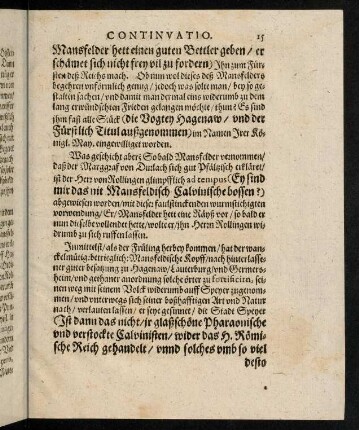 CONTINVATIO. 15
Mansfelder hett einen guten Bettler geben / er
schämet sich nicht frey vil zu fordern) Jhn zum Für-
sten deß Reichs mach. Ob nun wol dieses deß Mansfelders
begehren unförmlich genug / jedoch was solte man / bey so ge-
stalten sachen / vnd damit man dermal eins widerumb zu dem
lang erwündschten Frieden gelangen möchte / thun? Es sind
jhm fast alle Stück (die Vogtey Hagenaw / vnd der
Fürstlich Titul außgenommen) im Namen Jrer Kö-
nigl. May. eingewilliget worden.
Was geschicht aber? So bald Mansfelder vernommen /
daß der Marggraf von Durlach sich gut Pfältzisch erkläret /
ist der Herr von Rollingen glimpfflich ad tempus (Ey sind
mir das nit Mansfeldisch Calvinische bossen?)
abgewiesen worden / mit dieser faulstinckenden wurmstichigten
vorwendung / Er / Mansfelder hett eine Räyß vor / so bald er
nun dieselbe vollendet hette / wolte er / jhn Herrn Rollingen wi-
drumb zu sich ruffen lassen.
Jnmittelst / als der Früling herbey kommen / hat der wan-
ckelmütig-betrieglich: Mansfeldische Kopff / nach hinterlasse-
ner guter besatzung zu Hagenaw / Lauterburg / vnd Germers-
heim / vnd gethaner anordnung solche örter zu fortificirn, sei-
nen weg mit seinem Volck widerumb auff Speyer zugenom-
men / vnd vnterwegs sich seiner boßhafftigen Art vnd Natur
nach / verlauten lassen / er seye gesinnet / die Stadt Speyer
(Jst dann das nicht / jr glaßschöne Pharaonische
vnd verstockte Calvinisten / wider das H. Römi-
sche Reich gehandelt / vnnd solches vmb so viel
desto